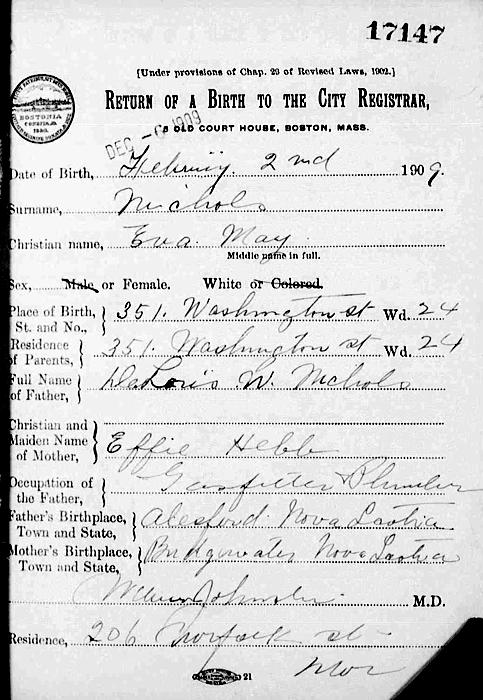 17147
[Under provisions of Chap. 29 of Revised Laws, 1902.]
RETURN OF A BIRTH TO THE CITY REGISTRAR,
BOSTONIA
CONDITA, A.D.
1630.
OLD COURT HOUSE, BOSTON, MASS.
DEC - 1909
Date of Birth, 2nd 1909.
Surname, Nichols
Christian name, Eva May
Middle name in full.
Sex, Male or Female. White or Colored.
Place of Birth, St. and No., 351. Washington st Wd. 24
Residence of Parents, 351. Washington st Wd. 24
Full Name of Father, W. Nichols
Christian and Maiden Name of Mother, Effie Hebb
Occupation of the Father, Gasfitter & Plumber
Father's Birthplace, Town and State, Nova Scotia
Mother's Birthplace, Town and State, Bridgewater Nova Scotia
M.D.
Residence, 206 Norfolk st
21